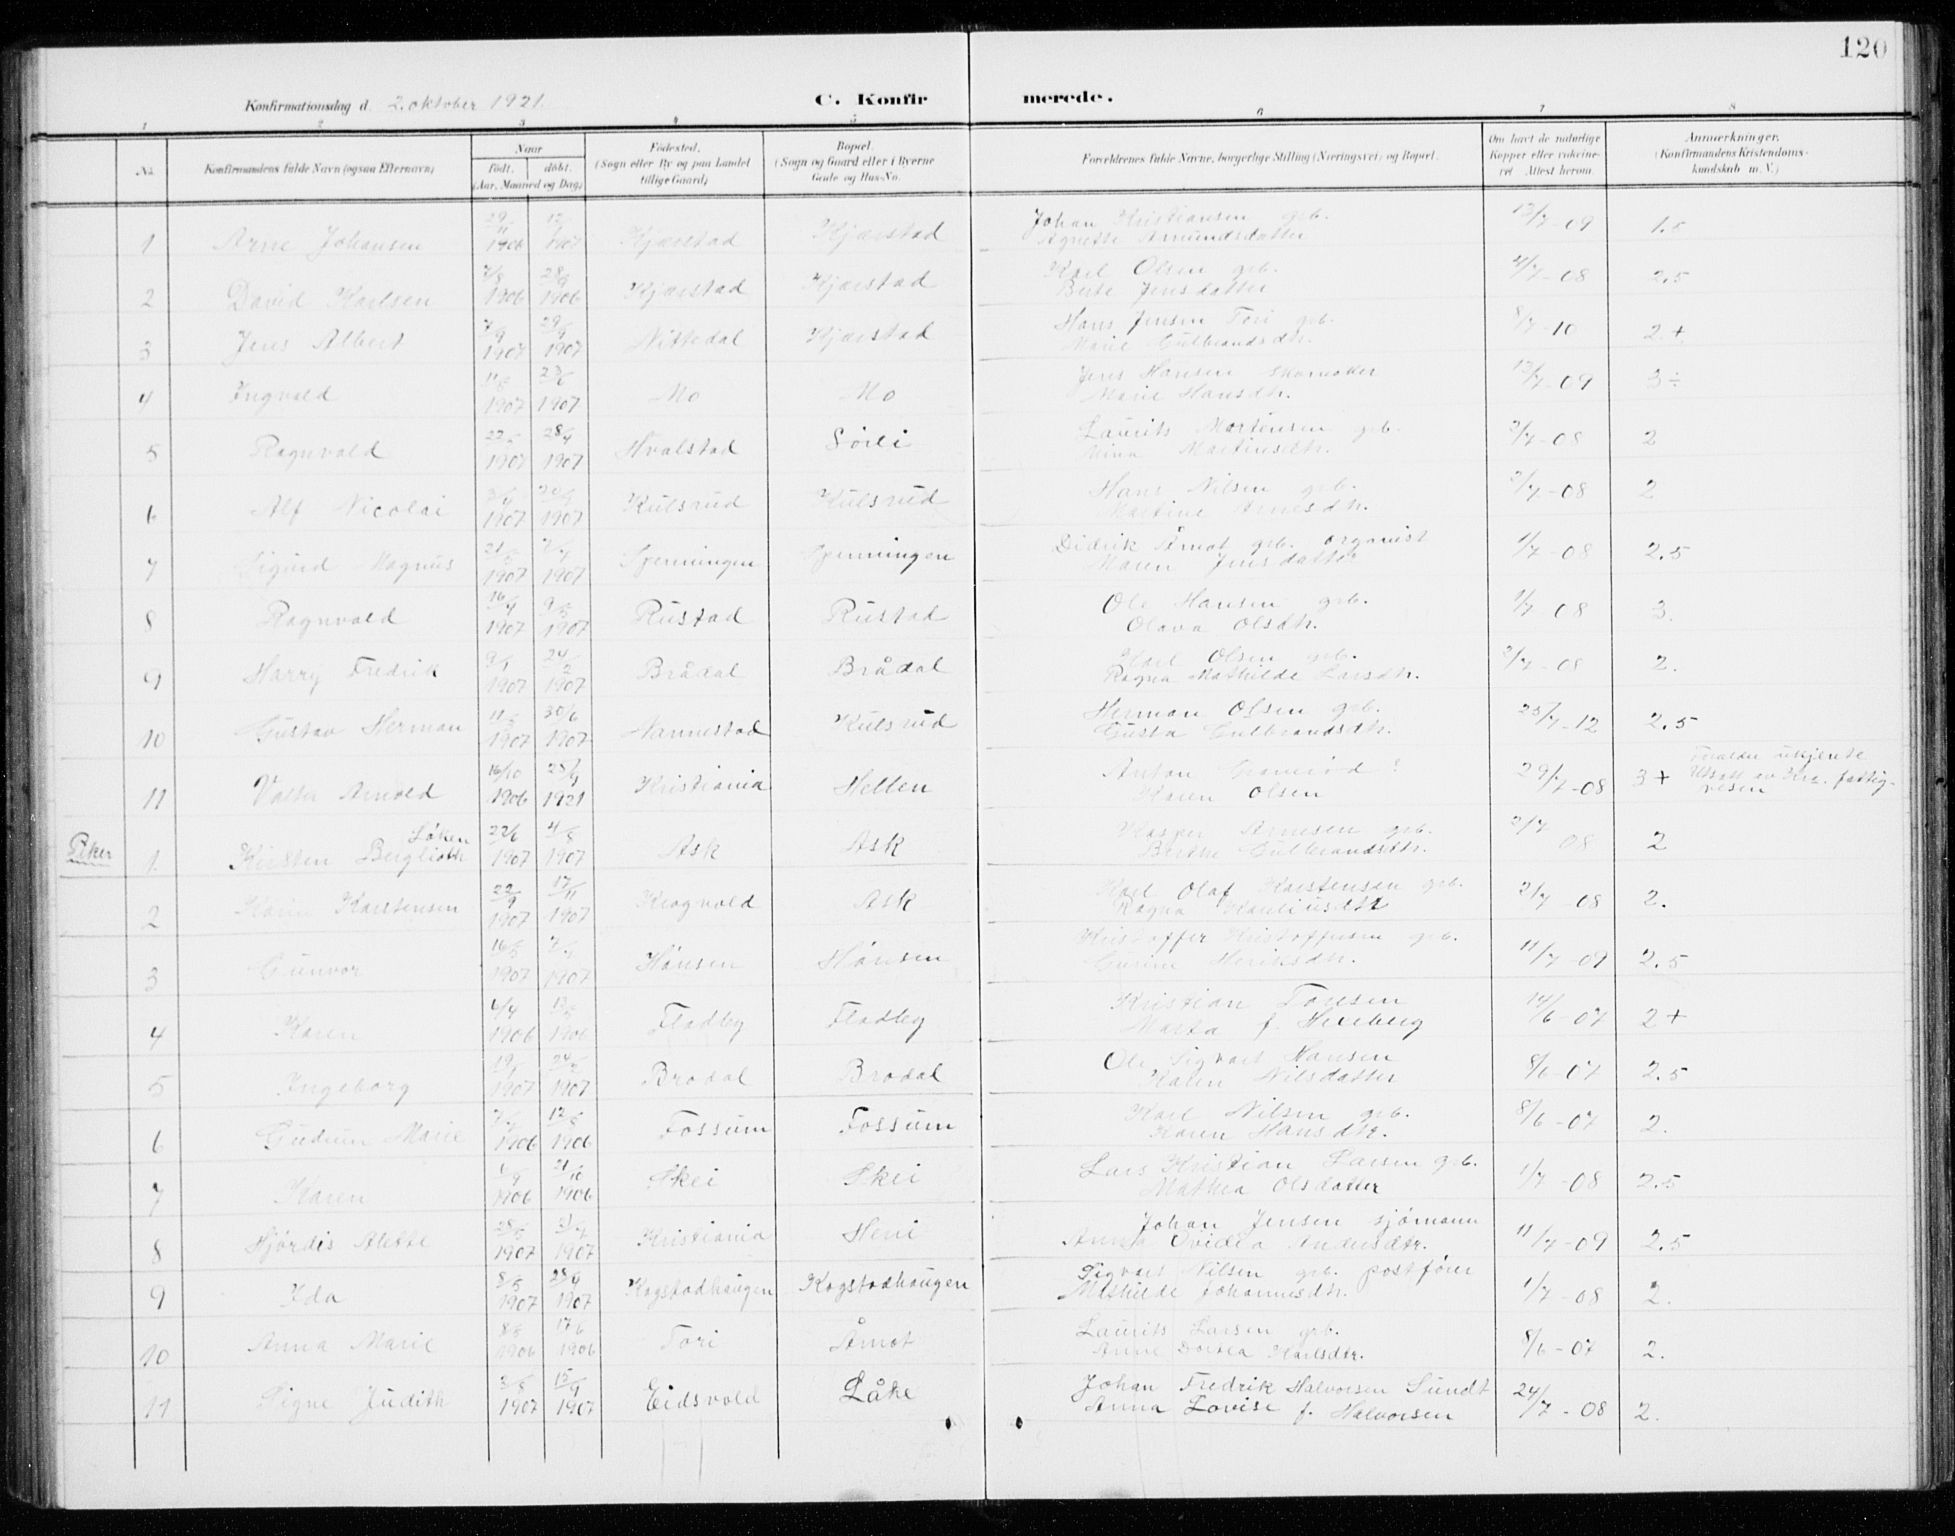 120
Konfirmationsdag d. 2. oktober 1921.
C. Konfirmerede.
1 2 3 4 5 6 7 8
No.
Konfirmandens fulde Navn (ogsaa Efternavn)
Naar
født. døbt.
(Aar, Maaned og Dag)
Fødested.
(Sogn eller By og paa Landet
tillige Gaard)
Bopæl.
(Sogn og Gaard eller i Byerne
Gade og Hus-No.
Forældrenes fulde Navne, borgerlige Stilling (Næringsvei) og Bopæl.
Om havt de naturlige
Kopper eller vakcine-
ret Attest herom.
Anmærkninger.
(Konfirmandens Kristendoms-
kundskab m. V.)
1 Arne Johansen 29/11 1906 1907 Kjærstad Kjærstad Johan Kristiansen grb. 13/7-09 1.5
Agnethe Amundsdatter
2 David Karlsen 7/8 1906 28/9 1906 Kjærstad Kjærstad Karl Olsen grb. 4/7-08 2.5
Berte Jensdatter
3 Jens Albert 7/9 1907 29/9 1907 Nittedal Kjærstad Hans Jensen Tori grb. 8/7-10 2+
Marie Gulbrandsdtr.
4 Ingvald 1907 23/6 1907 Mo Mo Jens Hansen skomaker 13/7-09 3÷
Marie Hansdtr.
5 Ragnvald 1907 28/4 1907 Hvalstad Sörli Laurits Mortensen grb. 2/7-08 2
Mina Martinsdtr.
6 Alf Nicolai 1907 1907 Kulsrud Kulsrud Hans Nilsen grb. 2/7-08 2
Martine Arnesdtr.
7 Sigurd Magnus 1907 1907 Spenningen Spenningen Didrik Åmot grb. organist 1/7-08 2.5
Maren Jensdatter
8 Ragnvald 16/4 1907 9/5 1907 Rustad Rustad Ole Hansen grb. 1/7-08 3.
Olava Olsdtr.
9 Harry Fredrik 9/1 1907 24/2 1907 Brådal Brådal Karl Olsen grb. 2/7-08 2.
Ragna Mathilde Larsdtr.
10 Gustav Herman 11/3 1907 30/6 1907 Nannestad Kulsrud Herman Olsen grb. 25/7-12 2.5
Gusta Gulbrandsdtr.
11 Valter Arnold 16/10 1906 25/9 1921 Kristiania Hellen Anton ? 29/7-08 3+ Foreldre ukjente
Karen Olsen Utsatt av Kra. fattig-
vesen
Piker
1. Kirsten Berglioth Löken 22/6 1907 4/8 1907 Ask Ask Kasper Arnesen grb. 2/7 08 2
Berthe Gulbrandsdtr.
2 Karin Karstensen 22/9 1907 17/11 1907 Krogvold Ask Karl Olaf Karstensen grb. 2/7 08 2.
Ragna
3 Gunvor 16/5 1907 1907 Hönsen Hönsen Kristoffer Kristoffersen grb. 11/7-09 2.5
Gurine Henriksdtr.
4 Karen 6/4 1906 13/5 1906 Fladby Fladby Kristian Toresen 14/6-07 2+
Marta f. Hexeberg
5 Ingeborg 19/1 1907 24/2 1907 Brodal Brodal Ole Sigvart Hansen 8/6-07 2.5
Karen Nilsdatter
6 Gudrun Marie 1906 12/8 1906 Fossum Fossum Karl Nilsen grb. 8/6-07 2.
Karen Hansdtr.
7 Karen 1906 21/10 1906 Skei Skei Lars Kristian Larsen grb. 1/7-08 2.5
Mathea Olsdatter
8 Hjördis Alette 1907 1907 Kristiania Heni Johan Jensen sjömann 11/7-09 2.5
Anna Ovidia Andersdtr.
9 Ida 8/3 1907 28/4 1907 Kogstadhaugen Kogstadhaugen Sigvart Nilsen grb. postförer 1/7-08 2.
Mathilde Johannesdtr.
10 Anna Marie 1906 17/6 1906 Tori Åmot Laurits Larsen grb. 8/6-07 2.
Anne Dortea Karlsdtr.
11 Signe Judith 3/8 1907 15/9 1907 Eidsvold Låke Johan Fredrik Halvorsen Sundt 24/7-08 2.
Anna Lovise f. Halvorsen